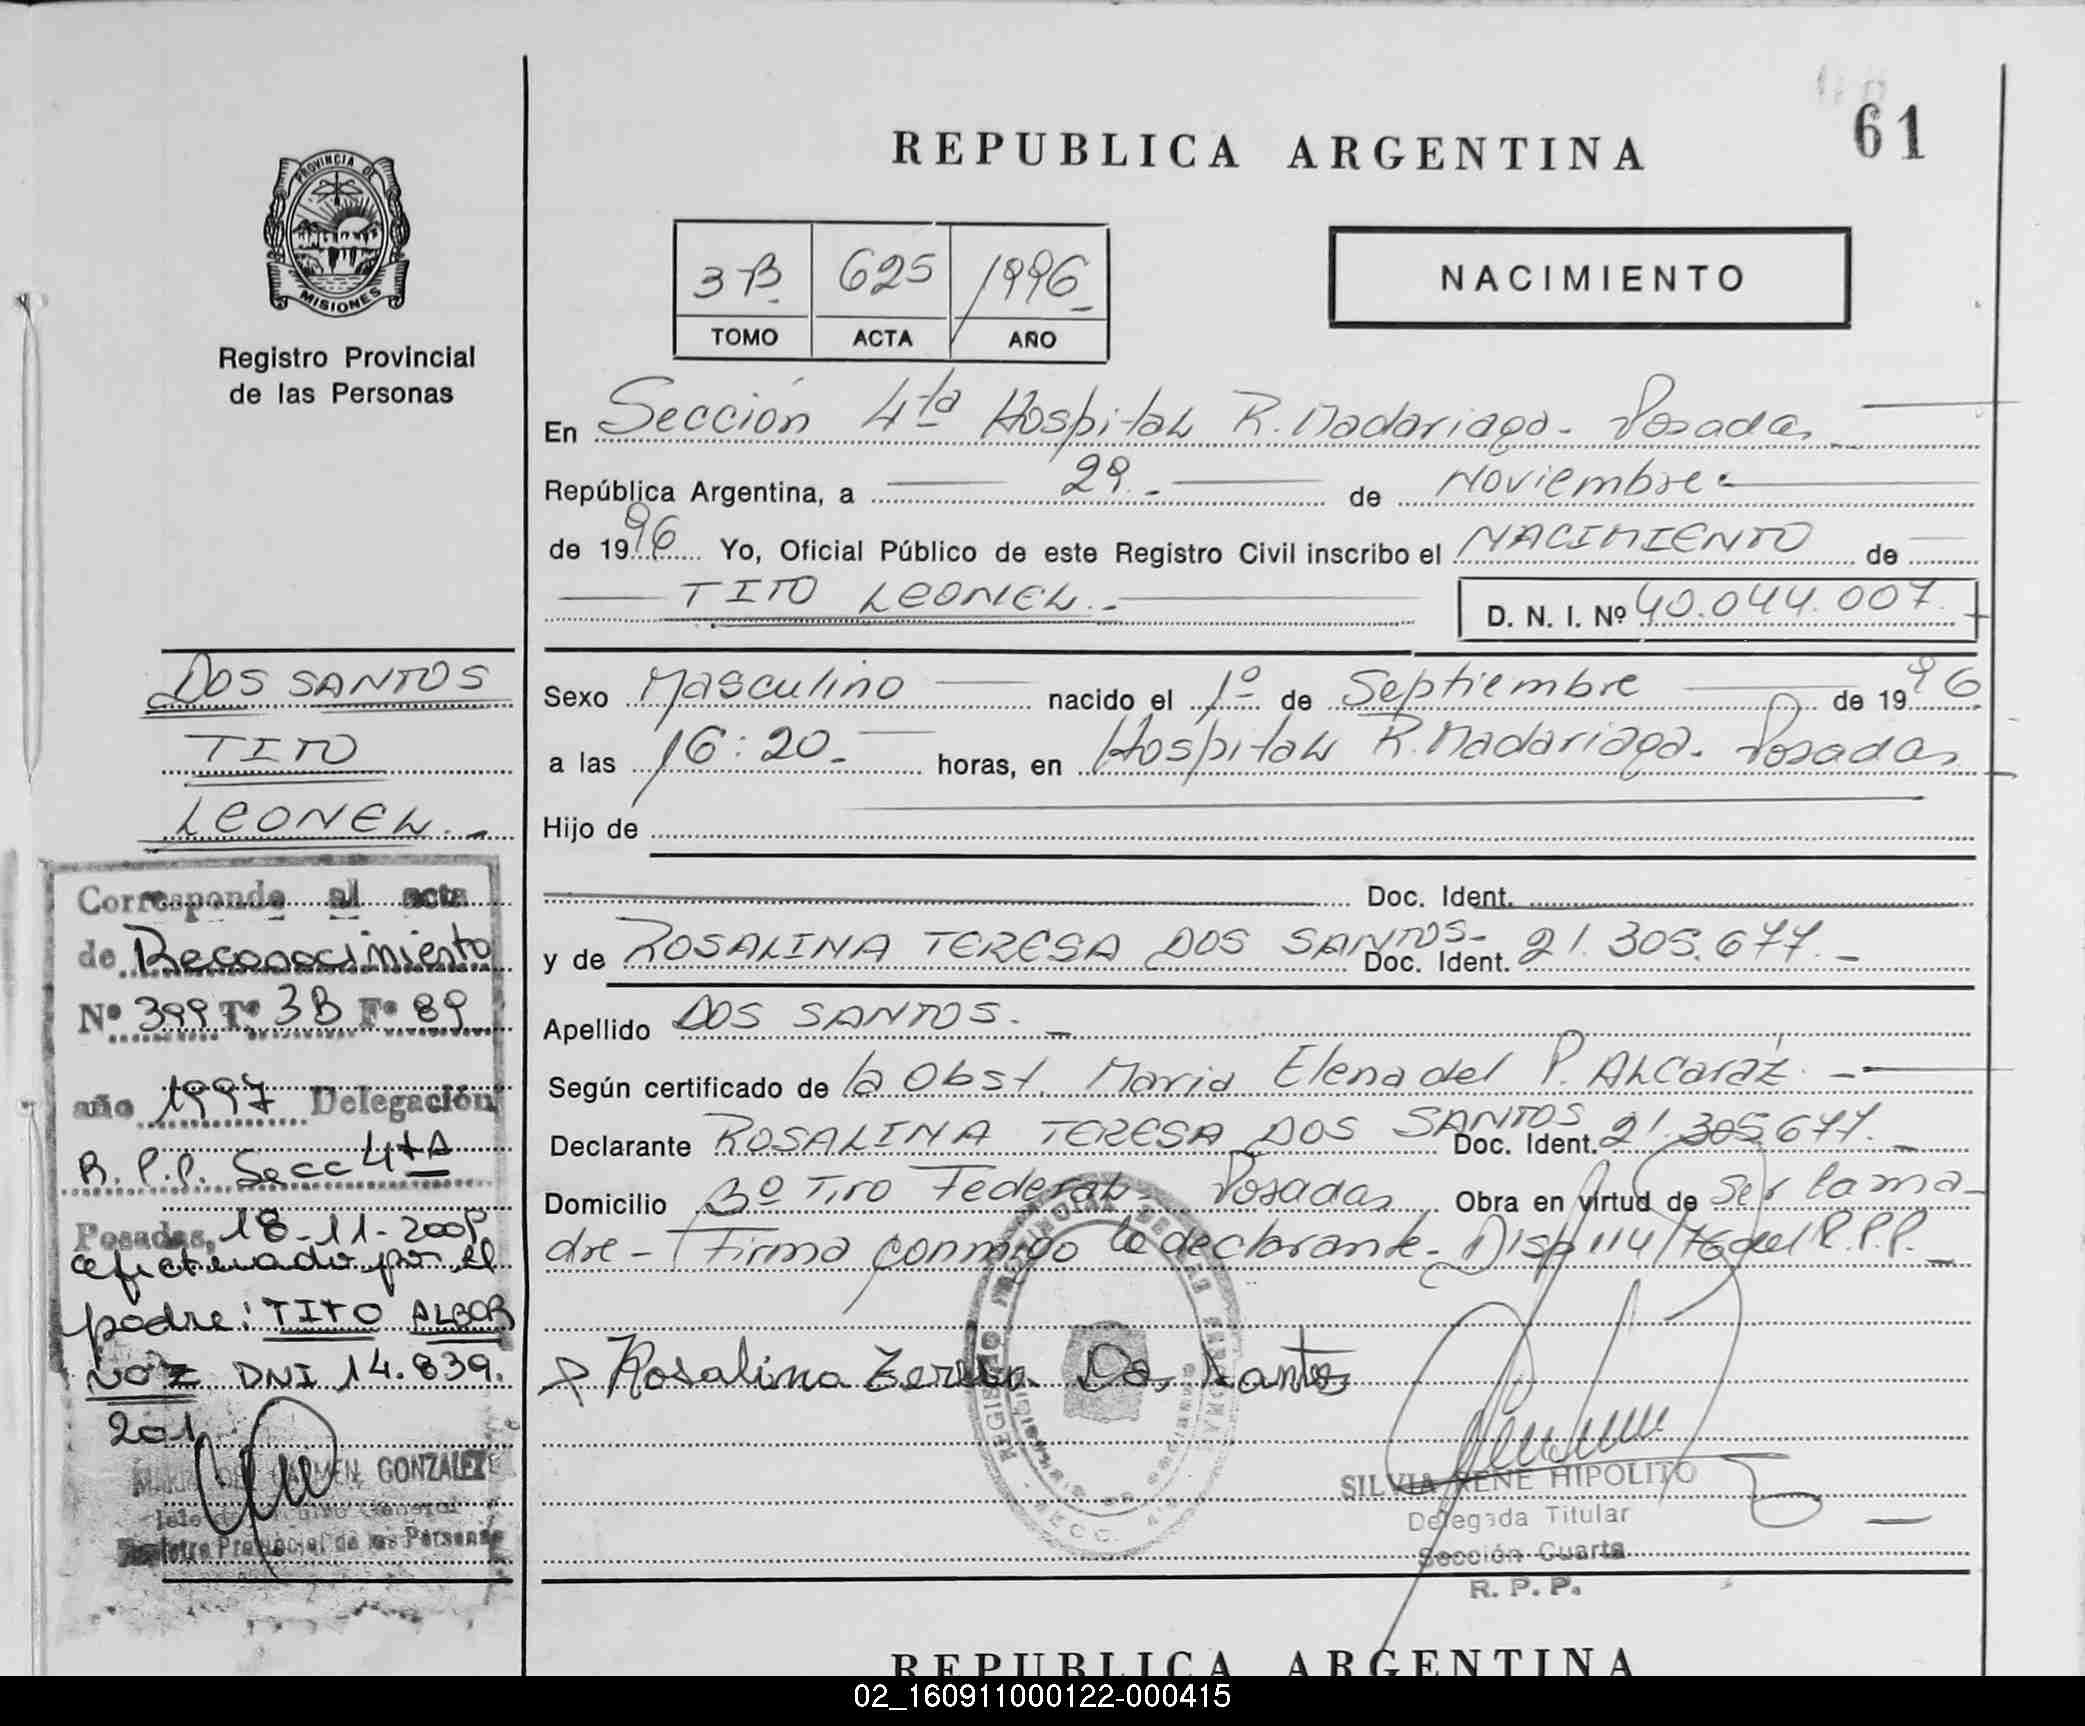 61
REPUBLICA ARGENTINA
PROVINCIA DE
MISIONES
Registro Provincial
de las Personas
3 B. 625 1996
TOMO ACTA AÑO
NACIMIENTO
En Sección 4ta Hospital R. Madariaga. Posadas.
República Argentina, a 29.- de Noviembre
de 1996 Yo, Oficial Público de este Registro Civil inscribo el NACIMIENTO de
TITO LEONEL.-
D. N. I. Nº 40.044.007.
Sexo Masculino nacido el 1º de Septiembre de 1996
a las 16:20.- horas, en Hospital R. Madariaga. Posadas
Hijo de
Doc. Ident.
y de ROSALINA TERESA DOS SANTOS- Doc. Ident. 21.305.677.-
Apellido DOS SANTOS.-
Según certificado de la Obst. Maria Elena del P. Alcaráz.-
Declarante ROSALINA TERESA DOS SANTOS Doc. Ident. 21.305677.-
Domicilio Bº Tiro Federal. Posadas Obra en virtud de ser la ma-
dre- Firma conmigo la declarante. Disp 114/76 del R.P.P.-
Rosalina Teresa Dos Santos
SILVIA RENE HIPOLITO
Delegada Titular
Sección Cuarta
R. P. P.
DOS SANTOS
TITO
LEONEL.-
Corresponde al acta
de Reconocimiento
Nº 399 Tº 3B Fº 89
año 1997 Delegación
R.P.P. Secc 4tA
Posadas, 18-11-2009
efectuado por el
padre: TITO ALBOR
NOZ DNI 14.839.
201
CARMEN GONZALEZ
Registro Provincial de las Personas
REPUBLICA ARGENTINA
02_160911000122-000415